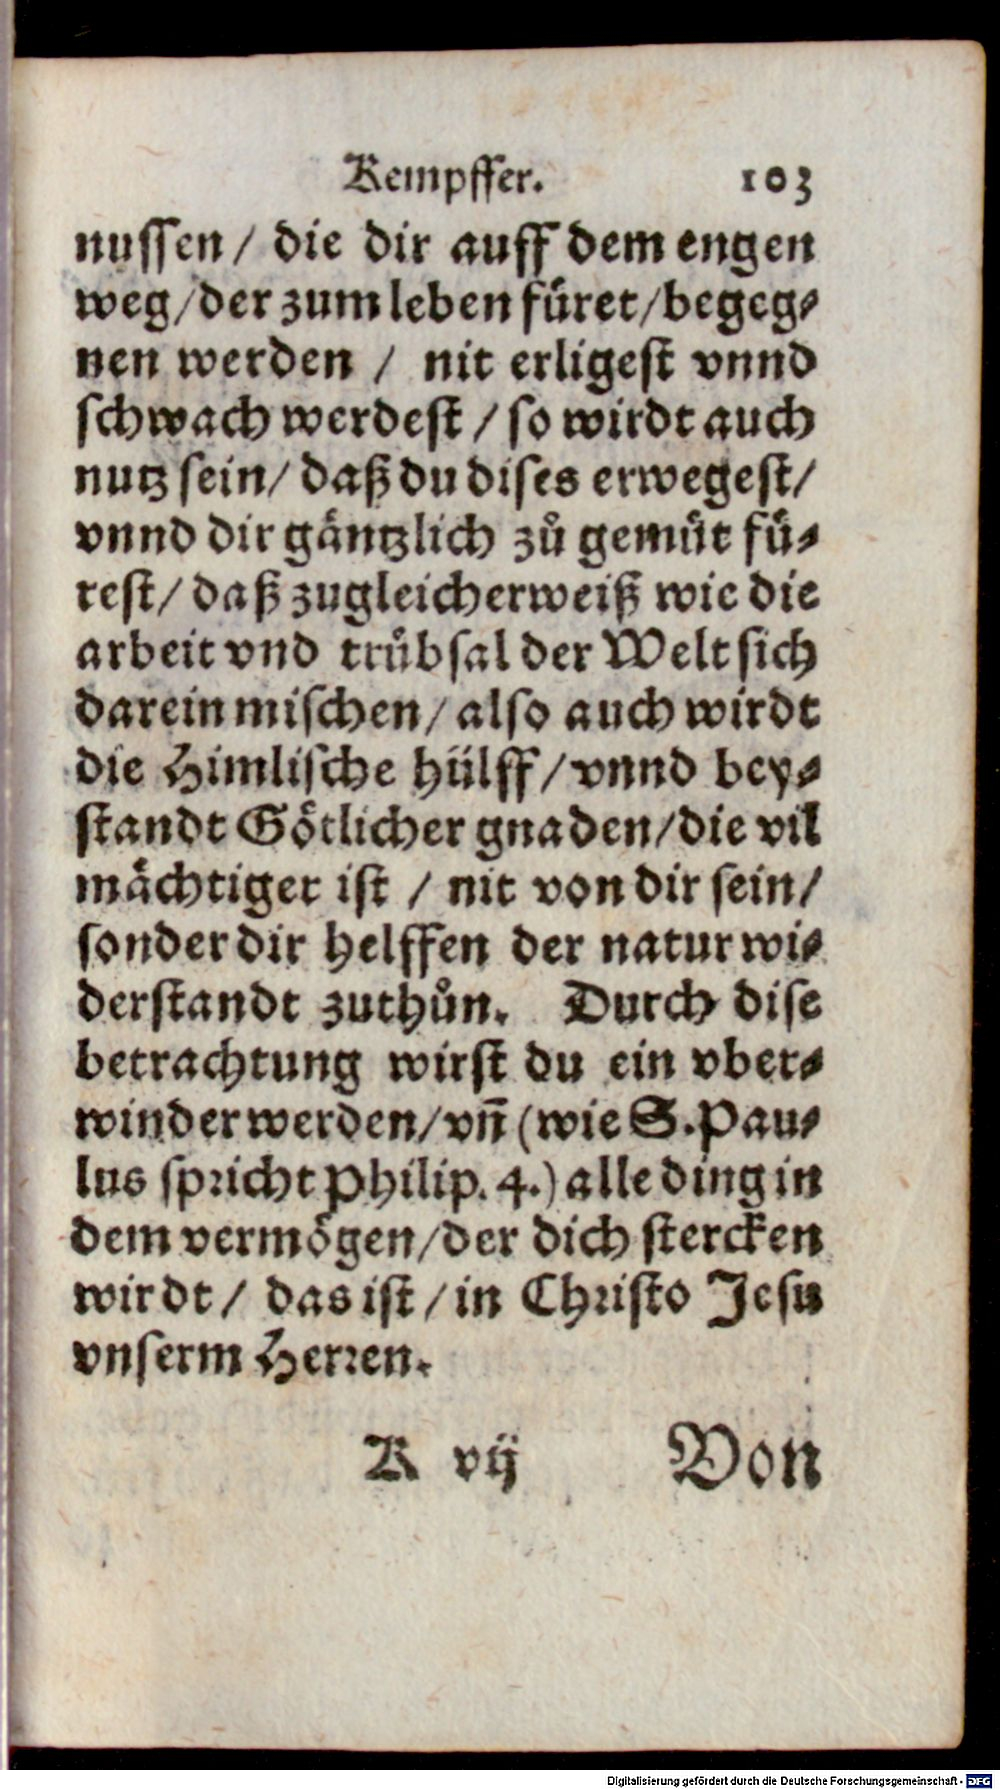 Kempffer. 103
nussen/ die dir auff dem engen
weg/der zum leben füret/begeg⸗
nen werden / nit erligest vnnd
schwach werdest / so wirdt auch
nutz sein/ daß du dises erwegest/
vnnd dir gäntzlich zů gemüt fü⸗
rest/ daß zugleicherweiß wie die
arbeit vnd trůbsal der Welt sich
darein mischen/ also auch wirdt
die Himlische hülff/vnnd bey⸗
standt Götlicher gnaden/die vil
mächtiger ist / nit von dir sein/
sonder dir helffen der natur wi⸗
derstandt zuthůn. Durch dise
betrachtung wirst du ein vber⸗
winder werden/vn̄ (wie S.Pau⸗
lus spricht Philip. 4.) alle ding in
dem vermögen/der dich stercken
wirdt/ das ist/in Christo Jesu
vnserm Herren.
K vij Von
Digitalisierung gefördert durch die Deutsche Forschungsgemeinschaft - DFG